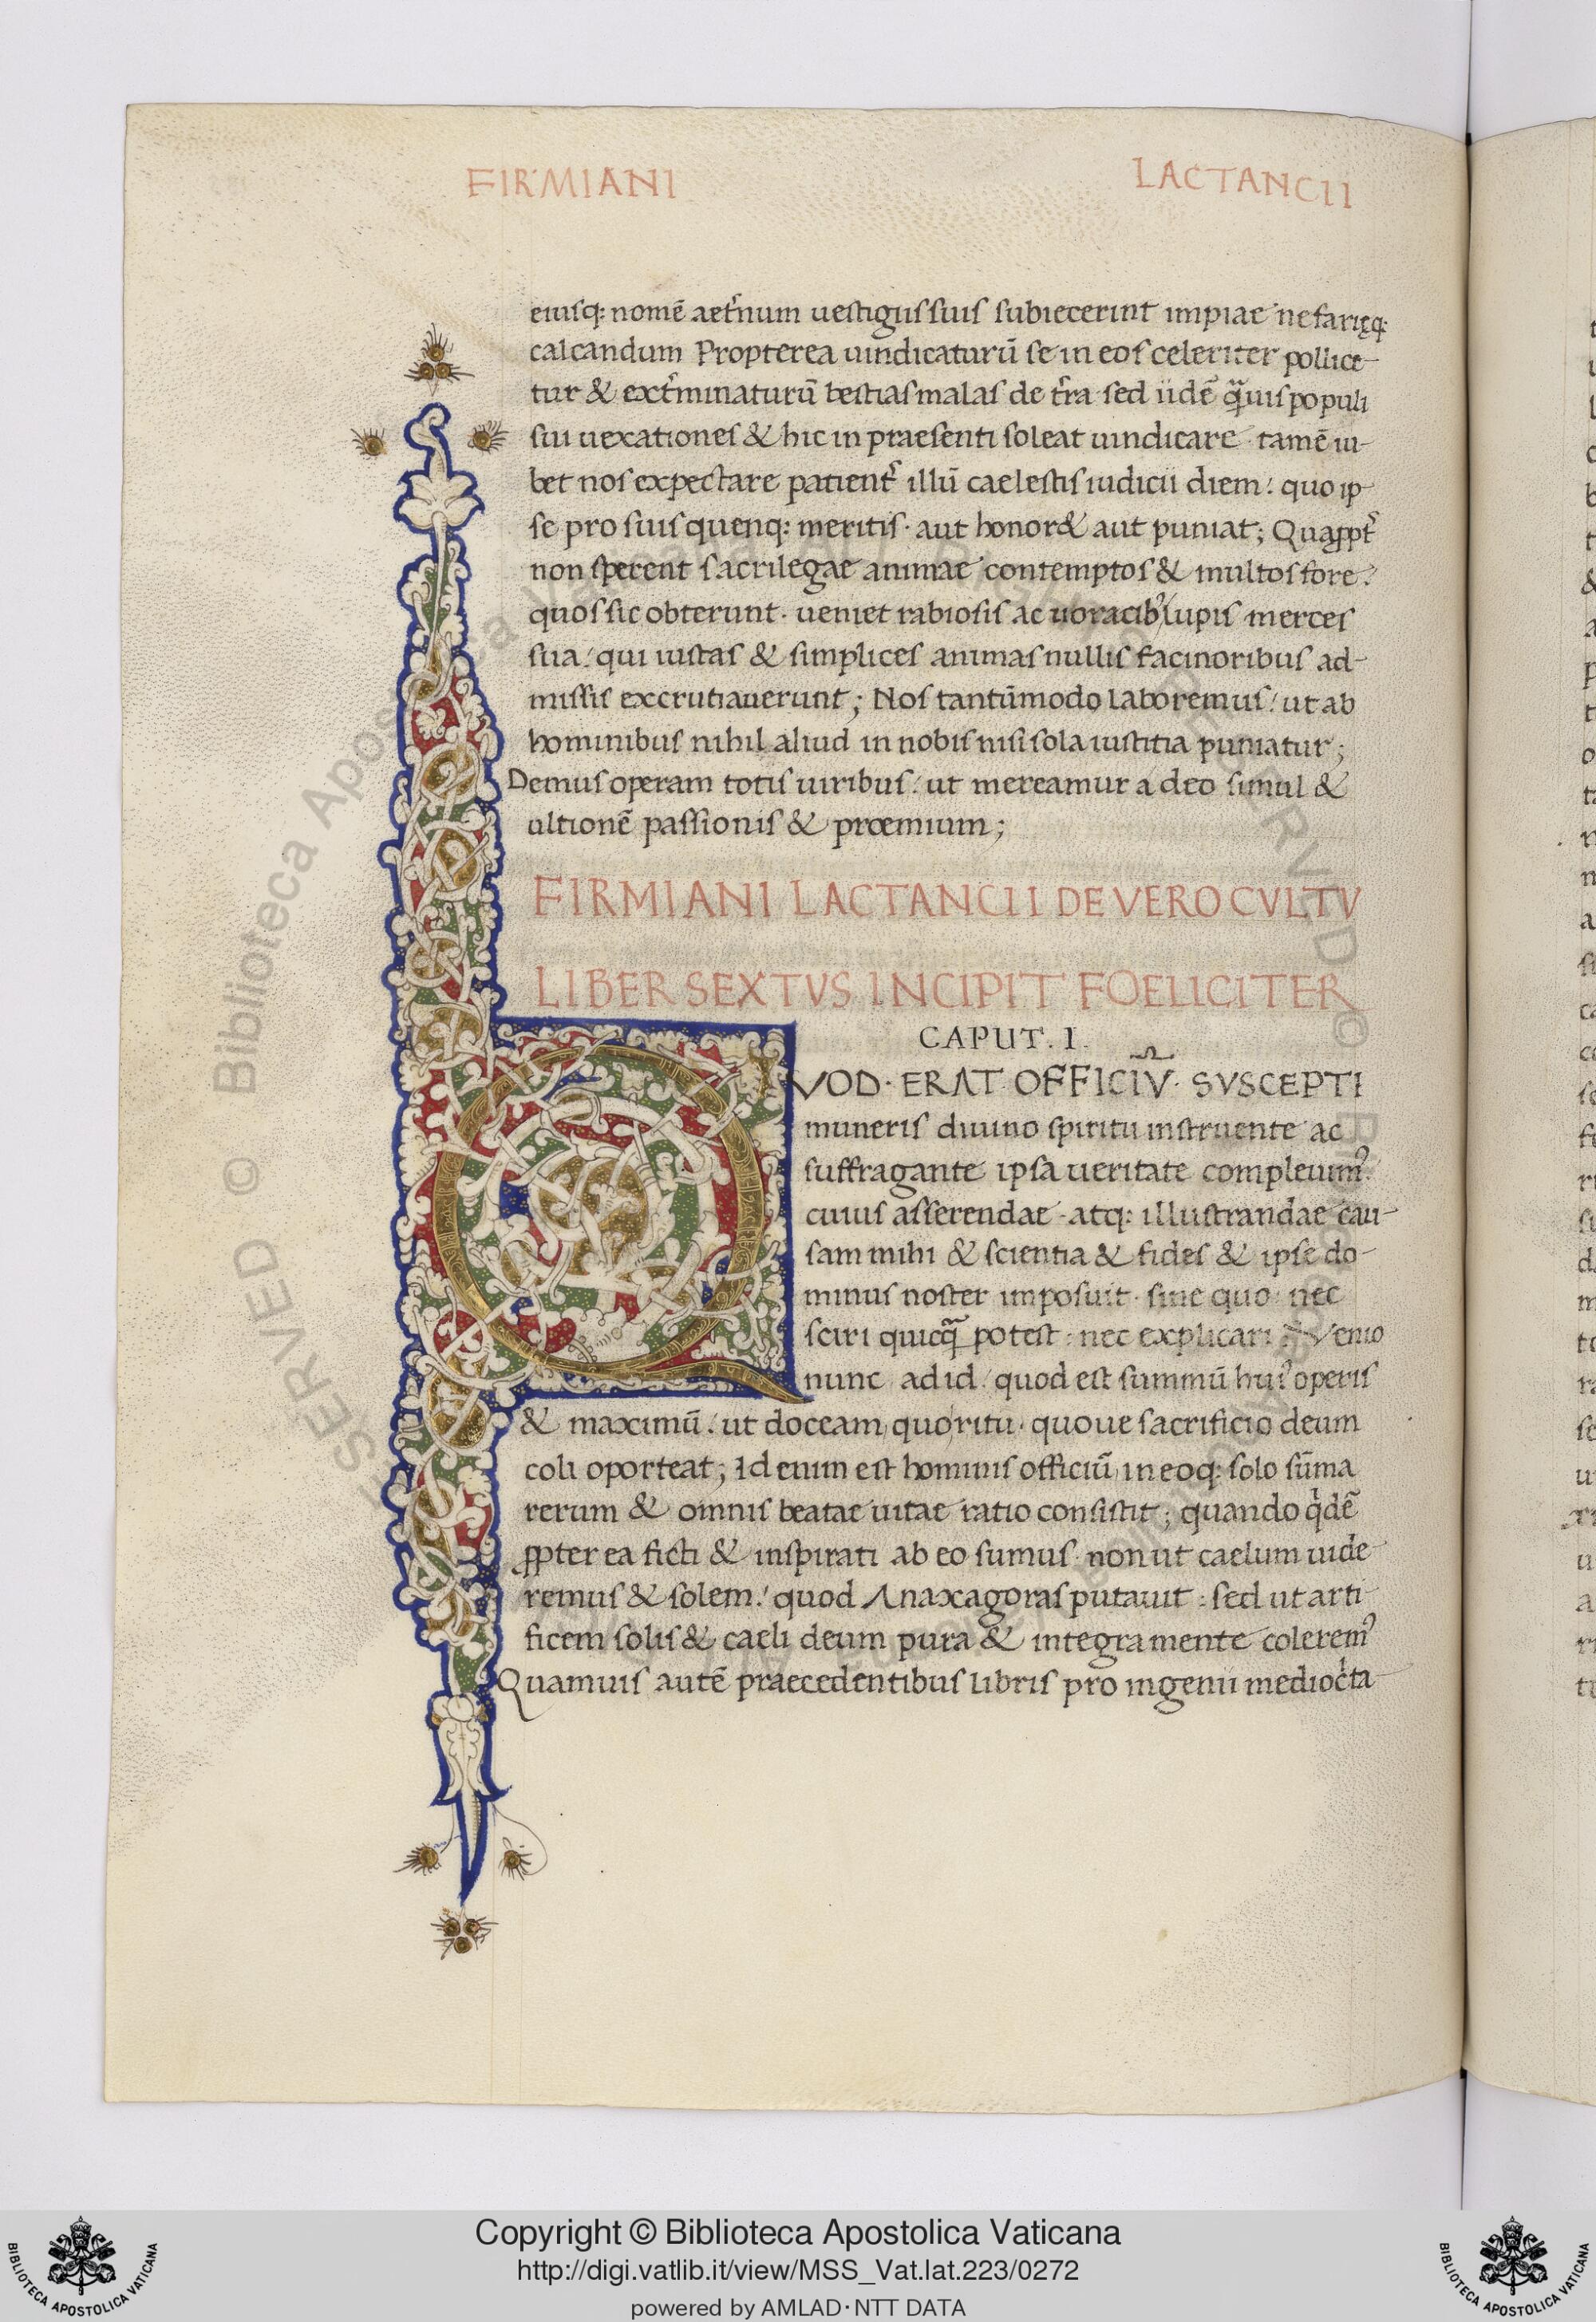 FIRMIANI LACTANCII
eiusq: nomē aet̄num uestigiis suis subiecerint impiae nefarięq:
calcandum Propterea uindicaturū se in eos celeriter pollice-
tur & ext̄minaturū bestias malas de t̄ra· sed iidē q̄uis populi
sui uexationes & hic in praesenti soleat uindicare· tamē iu-
bet nos expectare patient̄ illū caelestis iudicii diem: quo ip-
se pro suis quenq: meritis· aut honor& aut puniat; Quaꝓpt̄
non sperent sacrilegae animae contemptos & multos fore:
quos sic obterunt· ueniet rabiosis ac uoracib⁹ lupis merces
sua: qui iustas & simplices animas nullis facinoribus ad-
missis excrutiauerunt; Nos tantūmodo laboremus: ut ab
hominibus nihil aliud in nobis nisi sola iustitia puniatur;
Demus operam totis uiribus: ut mereamur a deo simul &
ultionē passionis & prœmium;
FIRMIANI LACTANCII DE VERO CVLTV
LIBER SEXTVS INCIPIT FOELICITER
CAPUT. I.
QVOD· ERAT OFFICIV̄· SVSCEPTI
muneris diuino spiritu instruente ac
suffragante ipsa ueritate compleuim⁹:
cuius asserendae· atq: illustrandae cau-
sam mihi & scientia & fides & ipse do-
minus noster imposuit· sine quo· nec
sciri quicq̄ potest: nec explicari: Venio
nunc ad id: quod est summū hui⁹ operis
& maximū: ut doceam quo ritu· quoue sacrificio deum
coli oporteat; Id enim est hominis officiū in eoq: solo sūma
rerum & omnis beatae uitae ratio consistit; quando q̇dē
ꝓpter ea ficti & inspirati ab eo sumus· non ut caelum uide-
remus & solem: quod Anaxagoras putauit: sed ut arti-
ficem solis & caeli deum pura & integra mente colerem⁹
Quamuis autē praecedentibus libris pro ingenii mediocita-
Copyright © Biblioteca Apostolica Vaticana
http://digi.vatlib.it/view/MSS_Vat.lat.223/0272
powered by AMLAD·NTT DATA
BIBLIOTECA APOSTOLICA VATICANA
BIBLIOTECA APOSTOLICA VATICANA